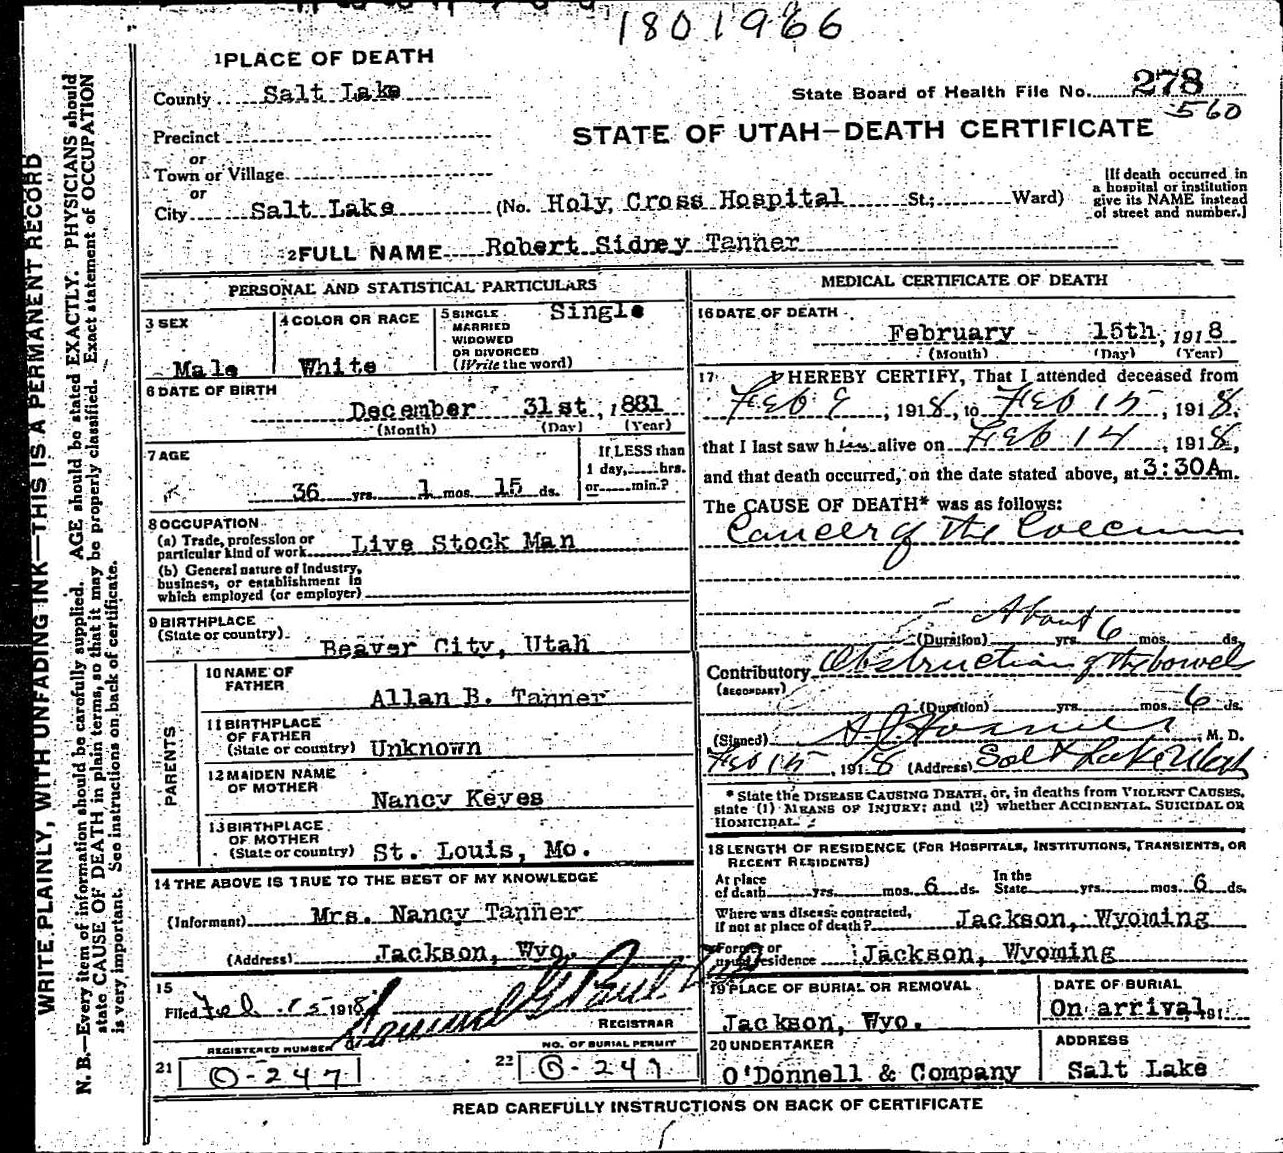 1801966
1 PLACE OF DEATH
County Salt Lake
State Board of Health File No. 278
560
Precinct
STATE OF UTAH—DEATH CERTIFICATE
or
Town or Village
or
City Salt Lake (No. Holy Cross Hospital St.; Ward)
[If death occurred in
a hospital or institution
give its NAME instead
of street and number.]
2 FULL NAME Robert Sidney Tanner
PERSONAL AND STATISTICAL PARTICULARS
3 SEX
Male
4 COLOR OR RACE
White
5 SINGLE
MARRIED
WIDOWED
OR DIVORCED
(Write the word)
Single
6 DATE OF BIRTH
December 31st, 1881
(Month) (Day) (Year)
7 AGE
36 yrs. 1 mos. 15 ds.
If LESS than
1 day, hrs.
or min.?
8 OCCUPATION
(a) Trade, profession or
particular kind of work Live Stock Man
(b) General nature of Industry,
business, or establishment in
which employed (or employer)
9 BIRTHPLACE
(State or country) Beaver City, Utah
PARENTS
10 NAME OF
FATHER
Allan B. Tanner
11 BIRTHPLACE
OF FATHER
(State or country) Unknown
12 MAIDEN NAME
OF MOTHER
Nancy Keyes
13 BIRTHPLACE
OF MOTHER
(State or country) St. Louis, Mo.
14 THE ABOVE IS TRUE TO THE BEST OF MY KNOWLEDGE
(Informant) Mrs. Nancy Tanner
(Address) Jackson, Wyo.
15
Filed Feb. 15 1918
REGISTRAR
REGISTERED NUMBER
21 O-247
NO. OF BURIAL PERMIT
22 G-247
MEDICAL CERTIFICATE OF DEATH
16 DATE OF DEATH
February 15th, 1918
(Month) (Day) (Year)
17 I HEREBY CERTIFY, That I attended deceased from
Feb 9, 1918, to Feb 15, 1918,
that I last saw him alive on Feb 14, 1918,
and that death occurred, on the date stated above, at 3:30A m.
The CAUSE OF DEATH* was as follows:
Cancer of the Coecum
About
(Duration) yrs. 6 mos. ds.
Contributory Obstruction of the bowels
(SECONDARY)
(Duration) yrs. mos. 6 ds.
(Signed) M. D.
Feb 15, 1918 (Address) Salt Lake Utah
* State the DISEASE CAUSING DEATH, or, in deaths from VIOLENT CAUSES,
state (1) MEANS OF INJURY; and (2) whether ACCIDENTAL, SUICIDAL OR
HOMICIDAL.
18 LENGTH OF RESIDENCE (FOR HOSPITALS, INSTITUTIONS, TRANSIENTS, OR
RECENT RESIDENTS)
At place
of death yrs. mos. 6 ds.
In the
State yrs. mos. 6 ds.
Where was disease contracted,
if not at place of death? Jackson, Wyoming
Former or
usual residence Jackson, Wyoming
19 PLACE OF BURIAL OR REMOVAL
Jackson, Wyo.
DATE OF BURIAL
On arrival, 191
20 UNDERTAKER
O'Donnell & Company
ADDRESS
Salt Lake
READ CAREFULLY INSTRUCTIONS ON BACK OF CERTIFICATE
WRITE PLAINLY, WITH UNFADING INK—THIS IS A PERMANENT RECORD
N. B.—Every item of information should be carefully supplied. AGE should be stated EXACTLY. PHYSICIANS should
state CAUSE OF DEATH in plain terms, so that it may be properly classified. Exact statement of OCCUPATION
is very important. See instructions on back of certificate.